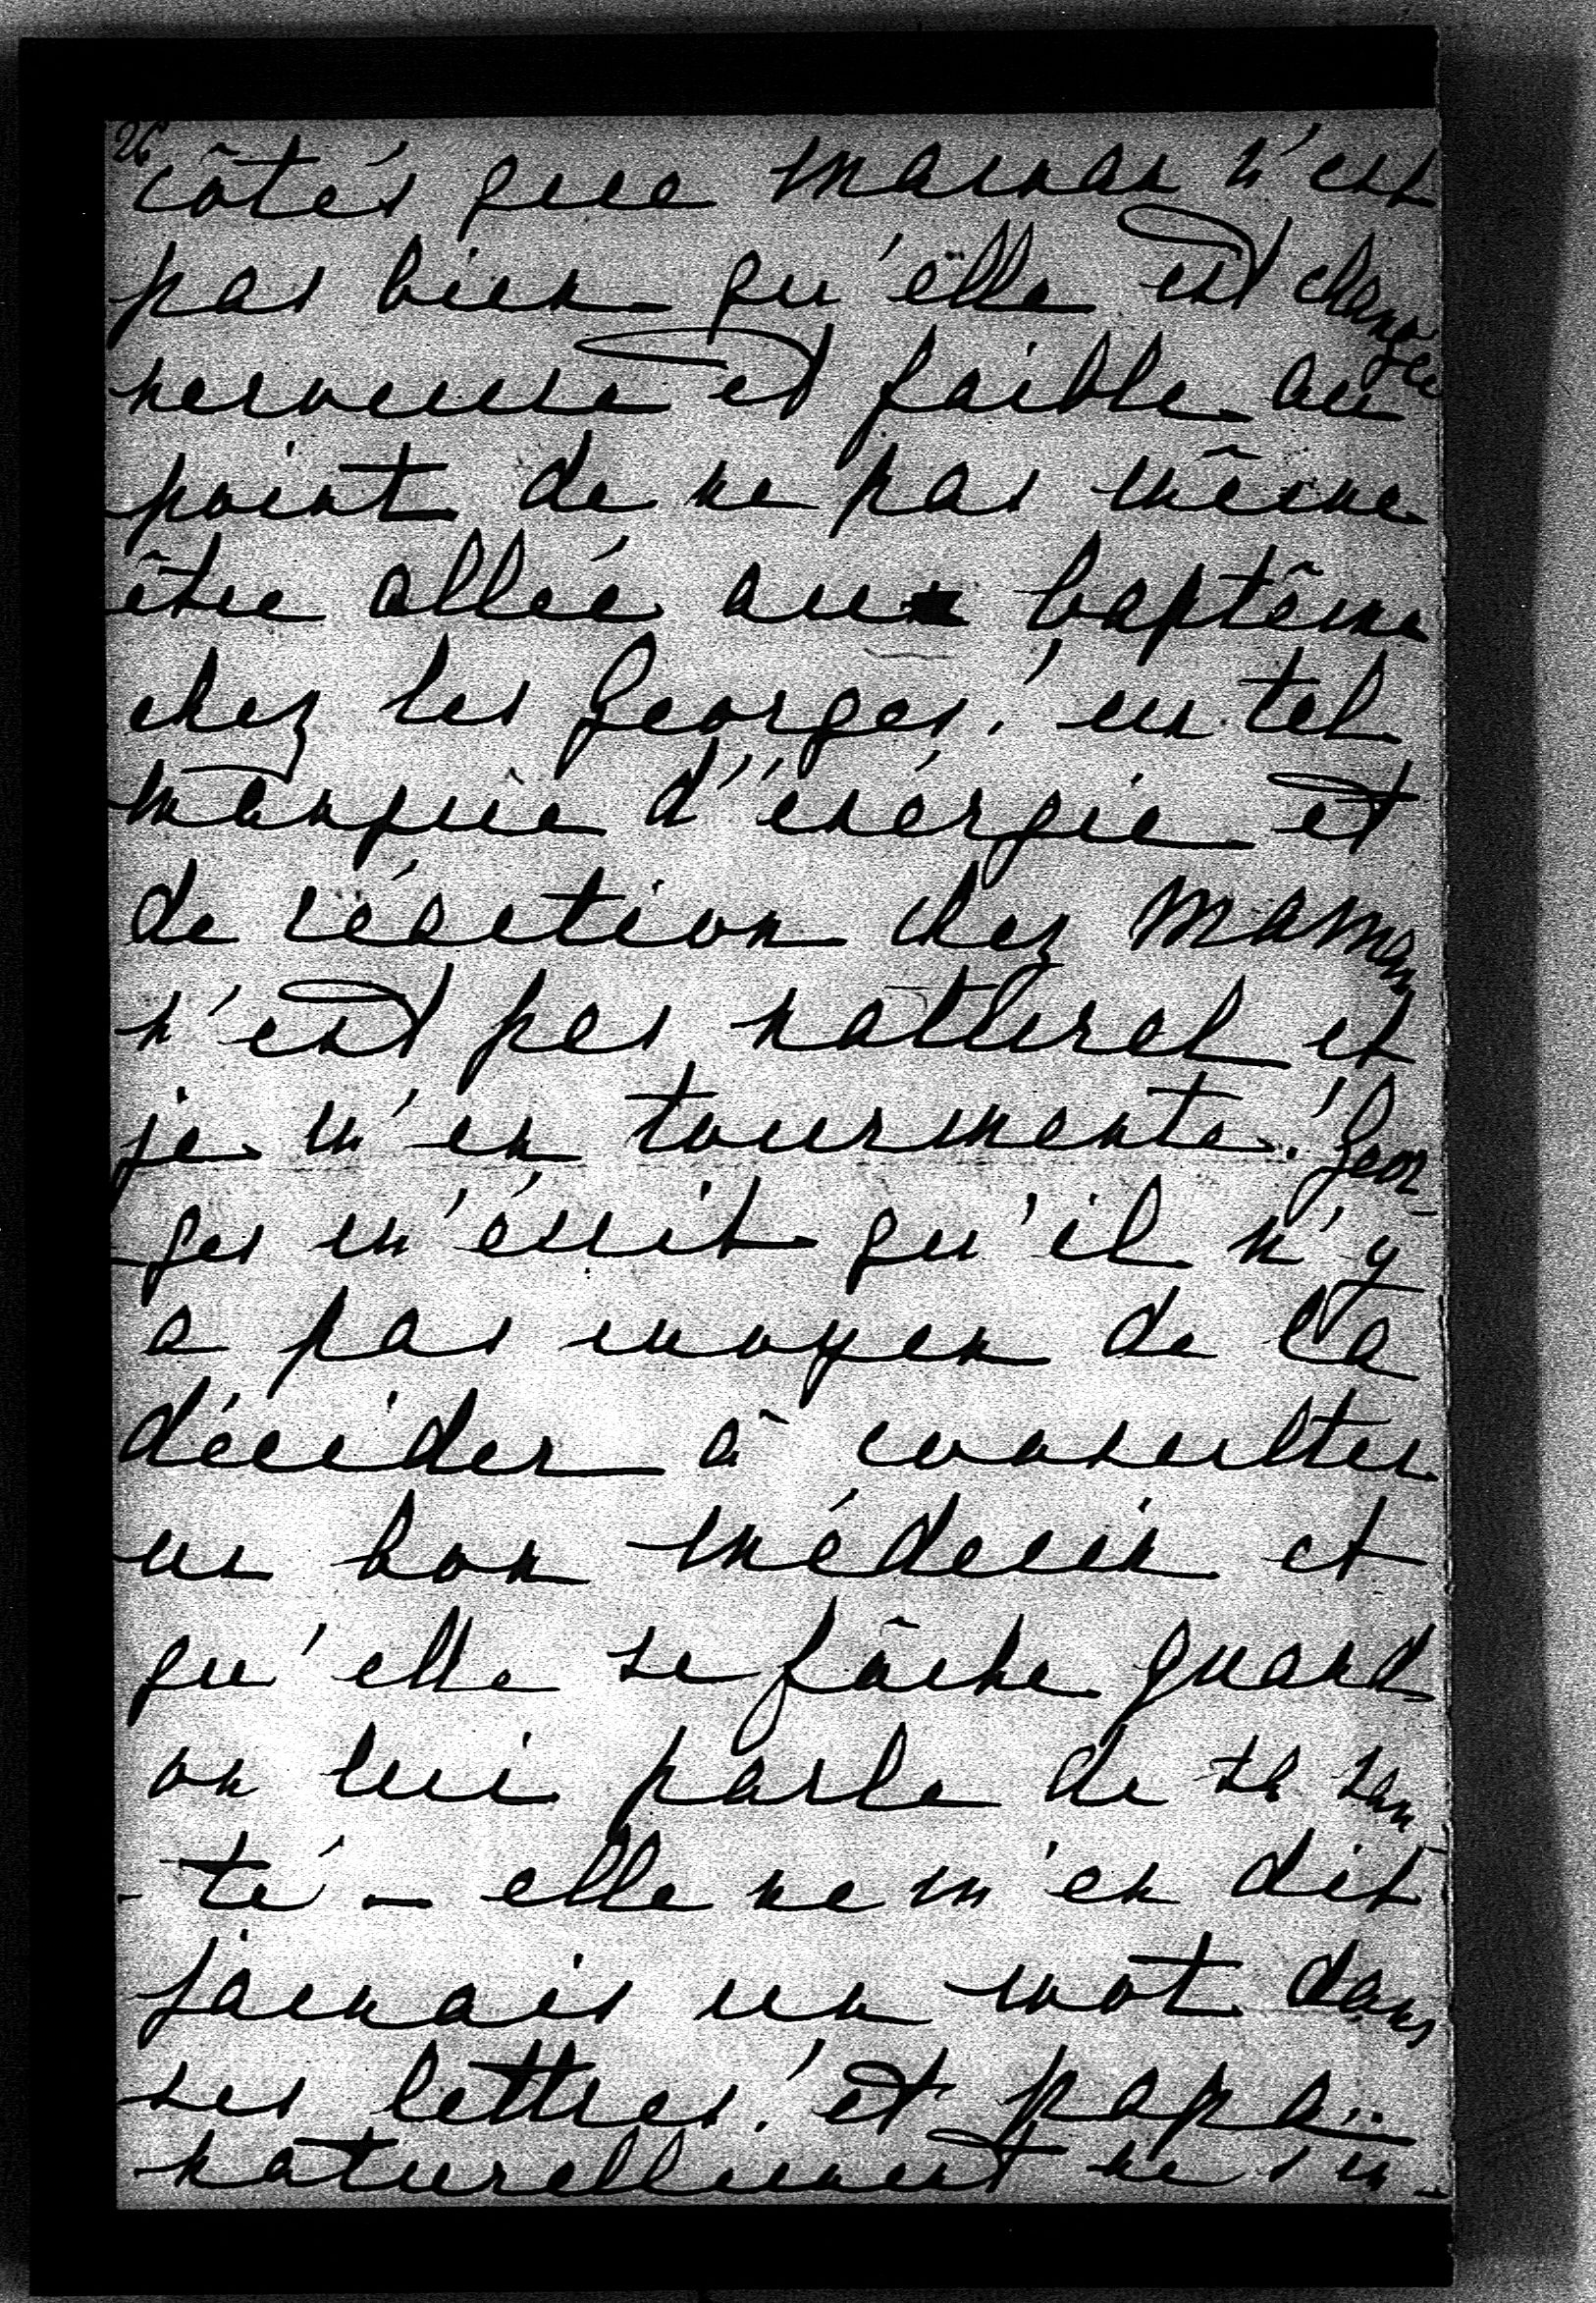 26
côtés que maman n'est
pas bien qu'elle est changée
nerveuse et faible au
point de ne pas même
être allée au baptême
chez les Georges! un tel
manque d'énérgie et
de réaction chez Maman
n'est pas naturel et
je m'en tourmente! Geor-
ges m'écrit qu'il n'y
a pas moyen de la
décider à consulter
un bon médecin et
qu'elle se fâche quand
on lui parle de sa san
-té - elle ne m'en dit
jamais un mot dans
ses lettres! et papa
naturellement ne s'in-